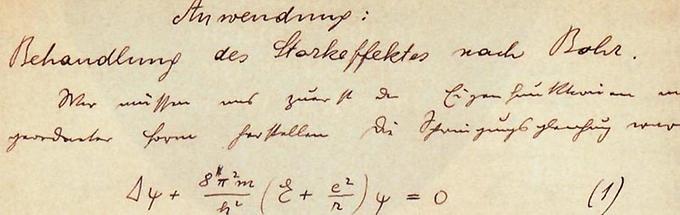 Anwendung:
Behandlung des Starkeffektes nach Bohr.
Wir müssen uns zuerst die Eigenfunktionen in
geordneter Form herstellen Die Schwingungsgleichung war
Δψ + 8π²m/h² (E + e²/r) ψ = 0 (1)